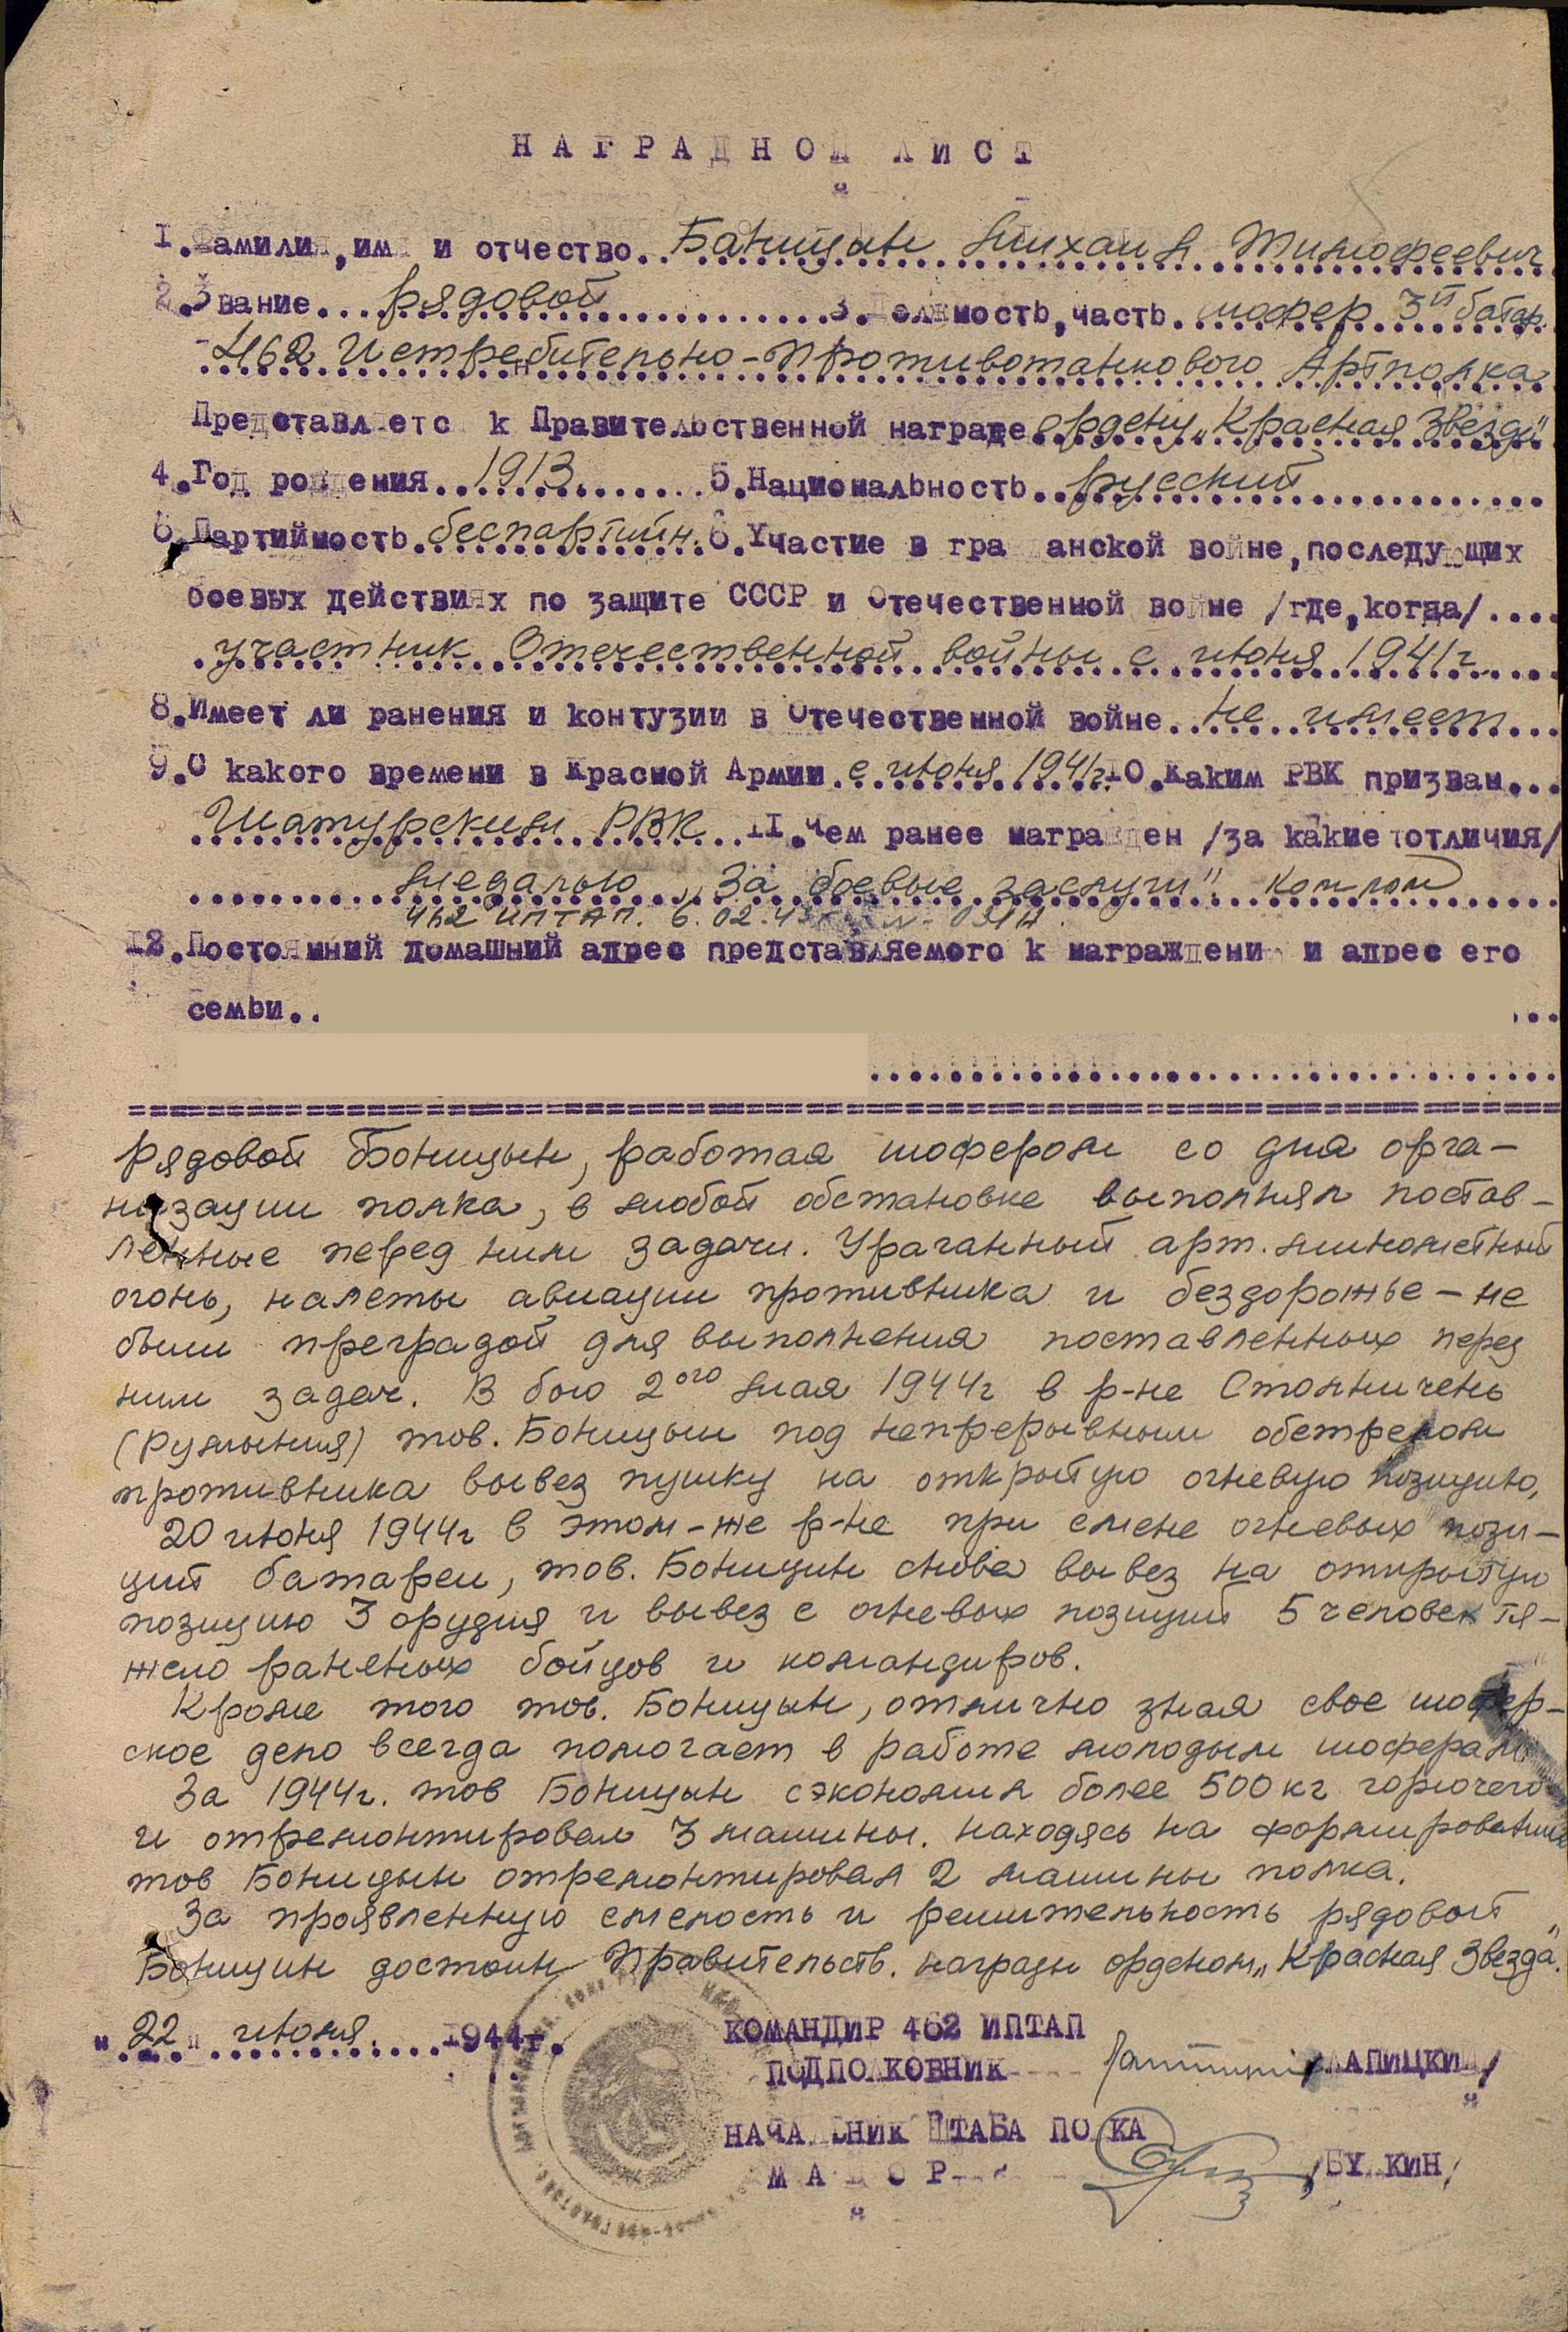 НАГРАДНОЙ ЛИСТ
1. Фамилия, имя и отчество.. Баницын Михаил Тимофеевич
2. Звание... рядовой 3. Должность, часть. шофер 3й батар.
462 Истребительно-Противотанкового Артполка
Представляется к Правительственной награде ордену „Красная Звезда"
4. Год рождения.. 1913 5. Национальность.. русский
6. Партийность. беспартийн. 6. Участие в гражданской войне, последующих
боевых действиях по защите СССР и Отечественной войне /где, когда/....
участник Отечественной войны с июня 1941г
8. Имеет ли ранения и контузии в Отечественной войне.. не имеет
9. С какого времени в Красной Армии. с июня 1941г. 10. Каким РВК призван...
Шатурским РВК ..11. Чем ранее награжден /за какие отличия/
медалью „За боевые заслуги"
462 ИПТАП. 6.02.43
12. Постоянный домашний адрес представляемого к награждению и адрес его
семьи..
рядовой Боницын, работая шофером со дня орга-
низации полка, в любой обстановке выполнял постав-
ленные перед ним задачи. Ураганный арт. минометный
огонь, налеты авиации противника и бездорожье - не
были преградой для выполнения поставленных перед
ним задач. В бою 2ого мая 1944г в р-не Столничень
(Румыния) тов. Боницын под непрерывным обстрелом
противника вывез пушку на открытую огневую позицию,
20 июня 1944г в этом-же р-не при смене огневых пози-
ций батареи, тов. Боницин снова вывез на открытую
позицию 3 орудия и вывез с огневых позиций 5 человек тя-
жело раненых бойцов и командиров.
Кроме того тов. Боницын, отлично зная свое шофер-
ское дело всегда помогает в работе молодым шоферам
За 1944г. тов Боницын сэкономил более 500 кг горючего
и отремонтировал 3 машины. Находясь на формировании
тов Боницын отремонтировал 2 машины полка.
За проявленную смелость и решительность рядовой
Боницин достоин Правительств. награды орденом „Красная Звезда".
„22" июня. 1944г.
КОМАНДИР 462 ИПТАП
ПОДПОЛКОВНИК---- /ЛАПИЦКИЙ/
НАЧАЛЬНИК ШТАБА ПОЛКА
МАЙОР--- /БУЛКИН/